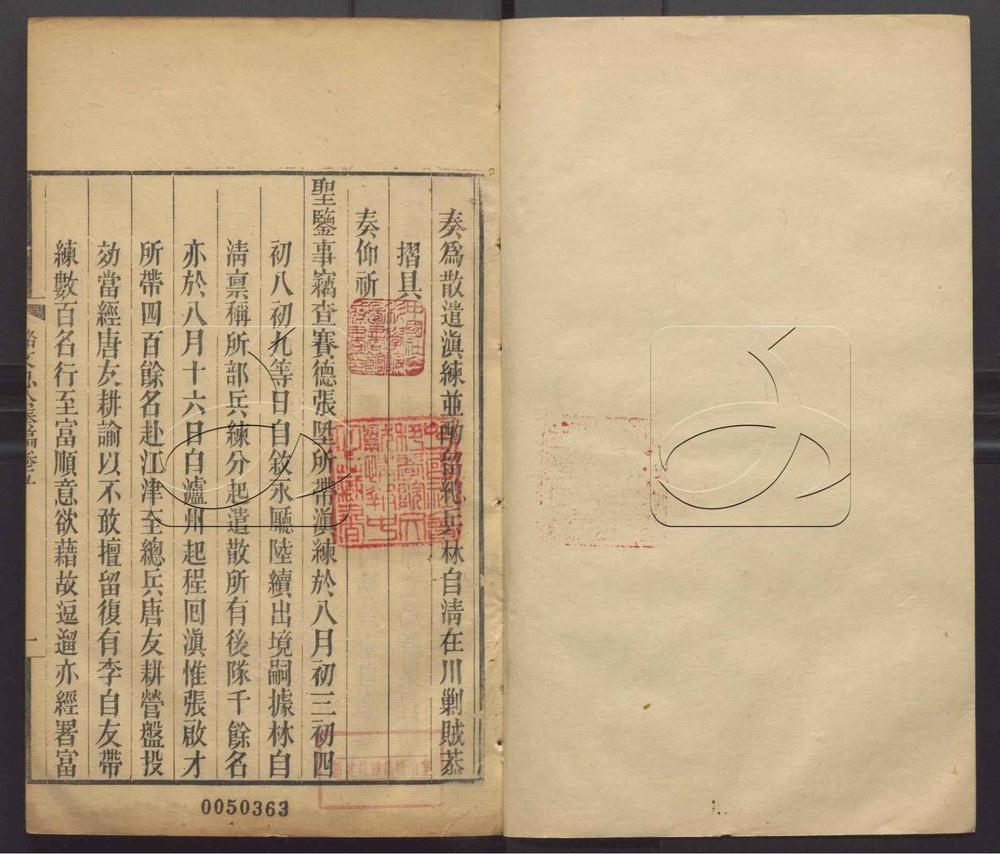 奏為散遣滇練並酌留總兵林自清在川剿賊恭
摺具
奏仰祈
聖鑒事竊查賽德張陞所帶滇練於八月初三初四
初八初九等日自敘永廳陸續出境嗣據林自
清稟稱所部兵練分起遣散所有後隊千餘名
亦於八月十六日自瀘州起程囘滇惟張啟才
所帶四百餘名赴江津至總兵唐友耕營盤投
効當經唐友耕諭以不敢擅留復有李自友帶
練數百名行至富順意欲藉故逗遛亦經署富
駱文忠公奏稿卷五
一
0050363